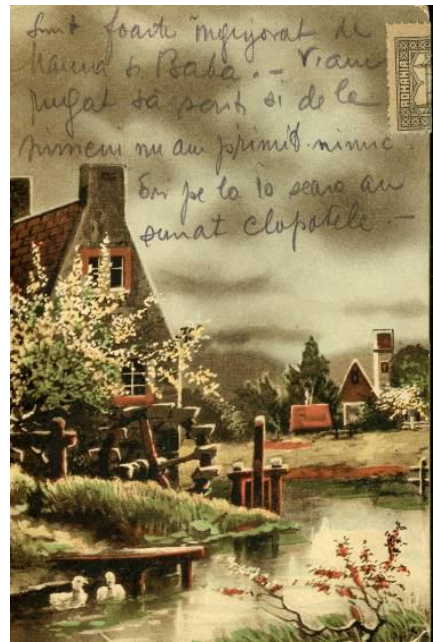 Sunt foarte îngrijorat de
Mama si Baba. - V-am
rugat să scriți si de la
nimeni nu am primit nimic
Eri pe la 10 seara au
sunat clopotele. -
ROMANIA